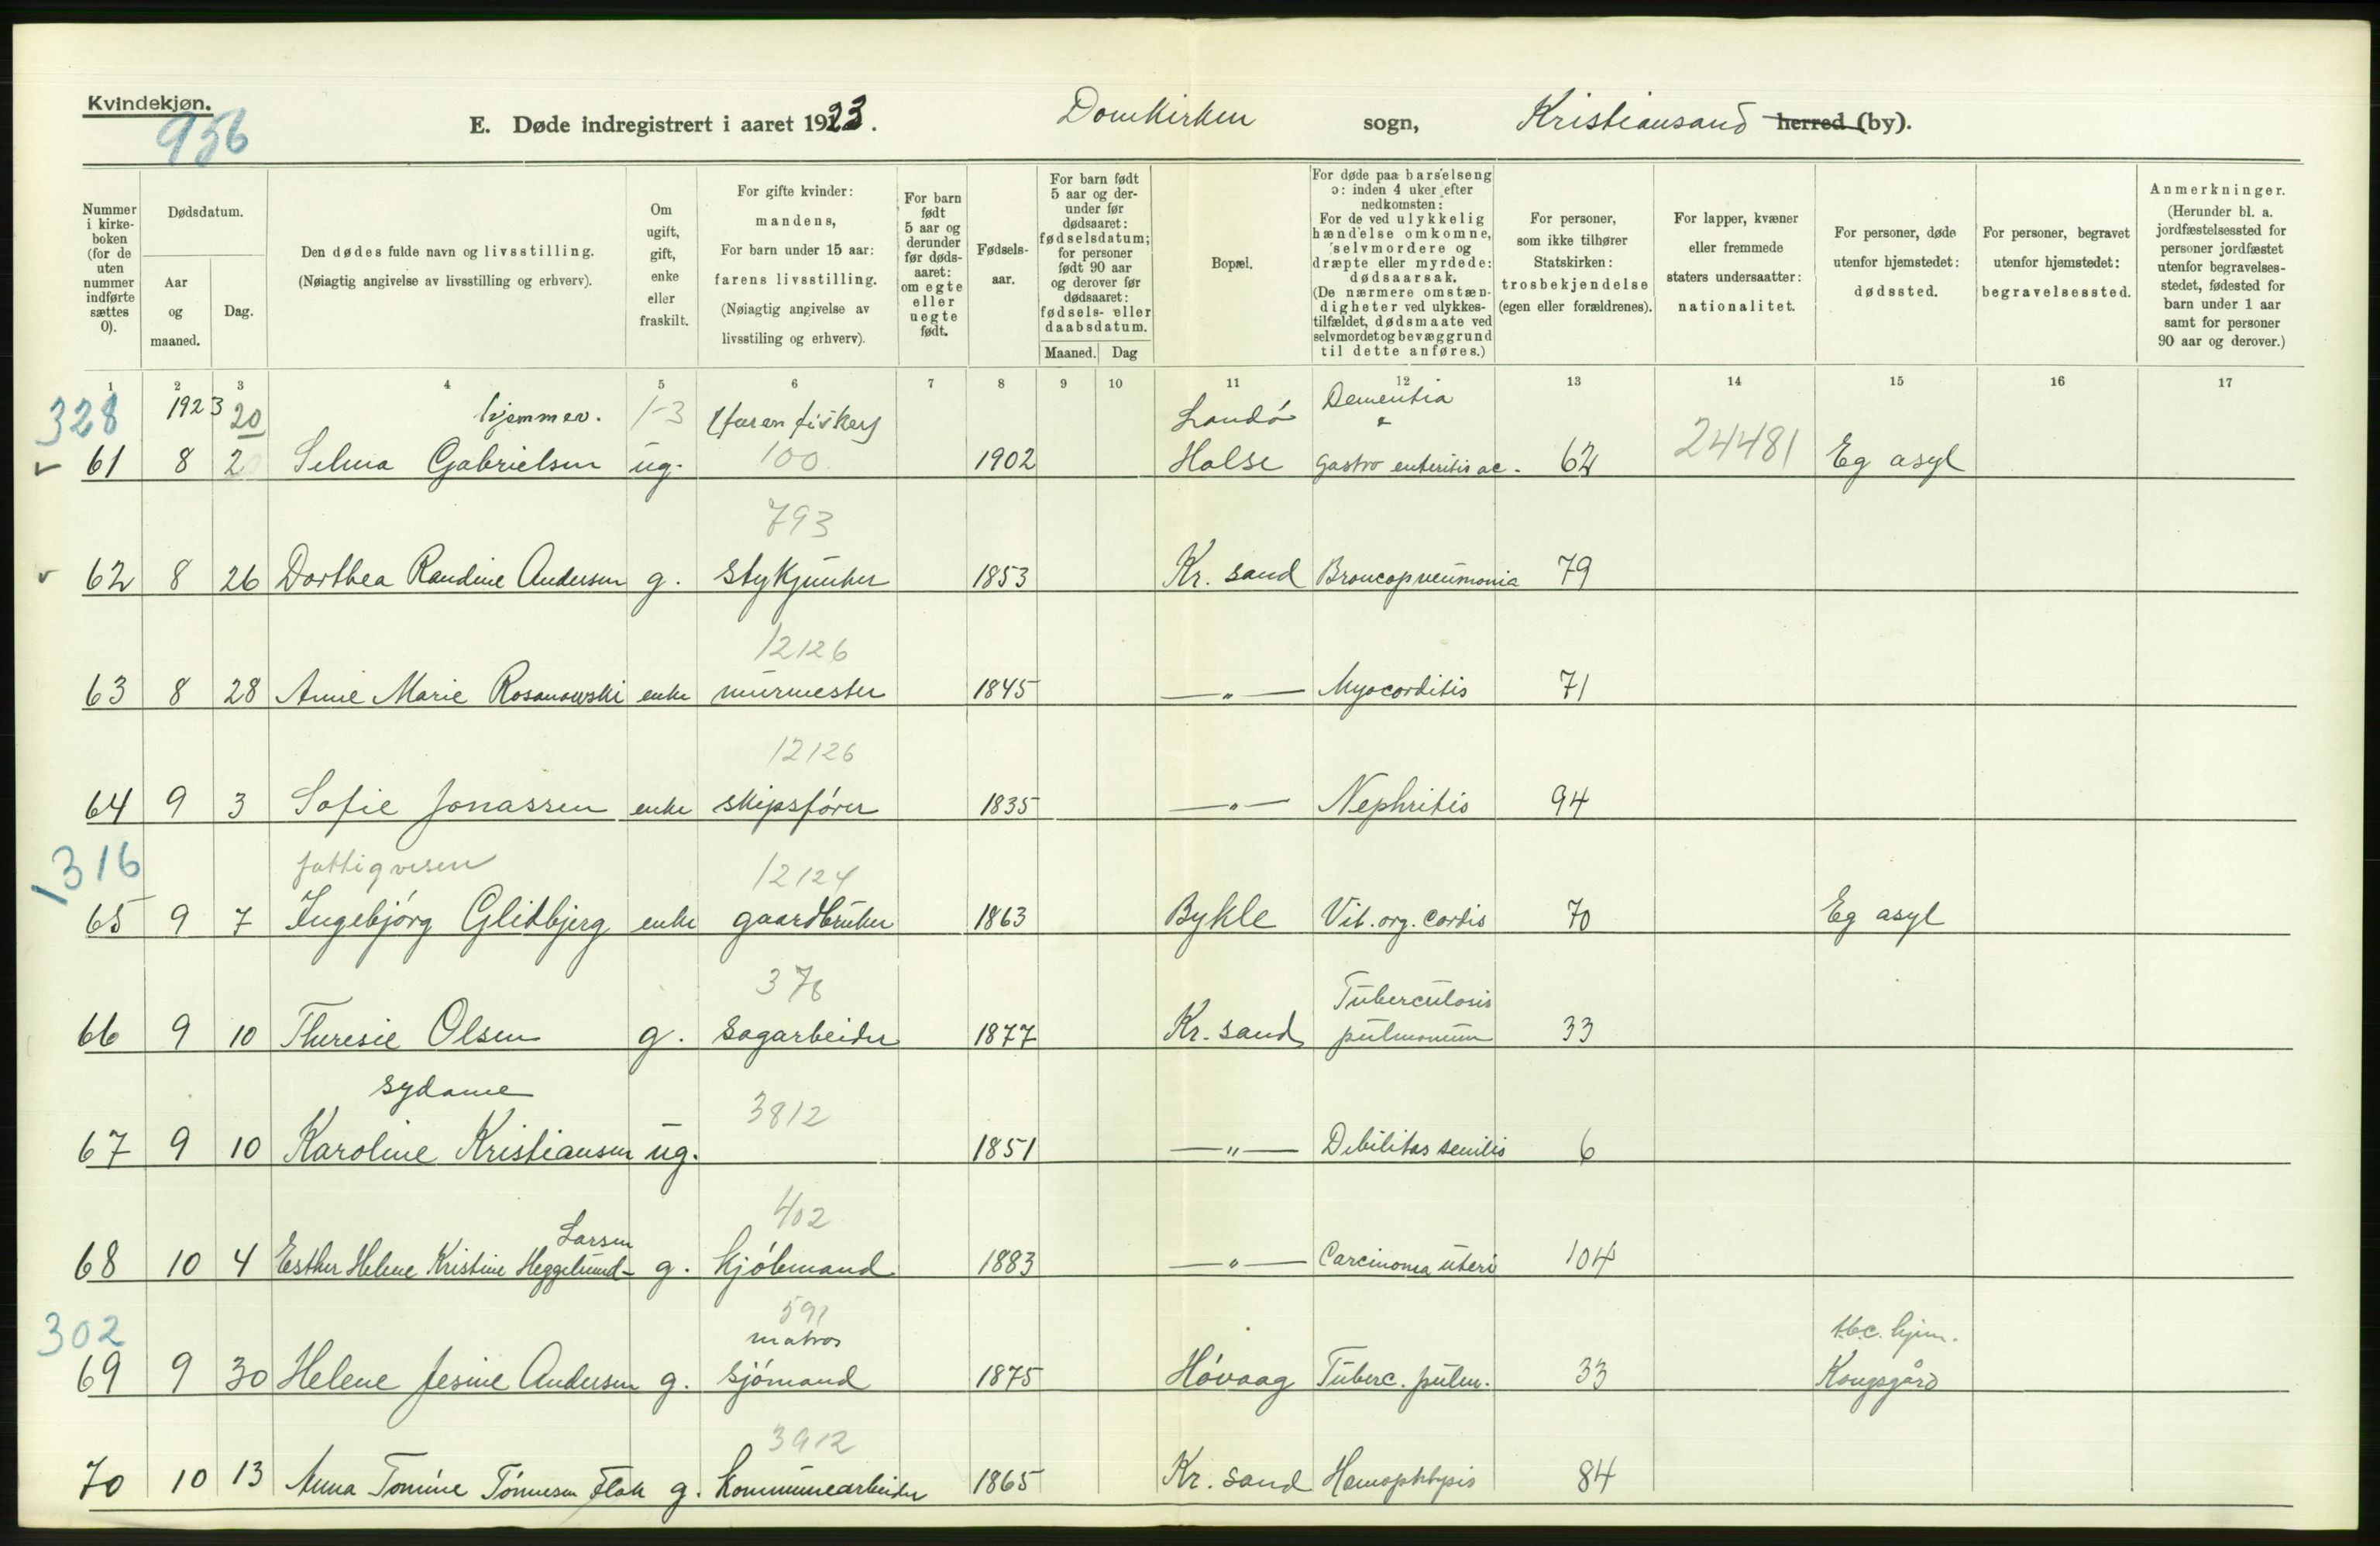 Kvindekjøn.
956
E. Døde indregistrert i aaret 1923.
Domkirken sogn, Kristiansand herred (by).
Nummer i kirke-boken (for de uten nummer indførte sættes 0).
Dødsdatum.
Aar og maaned.
Dag.
Den dødes fulde navn og livsstilling.
(Nøiagtig angivelse av livsstilling og erhverv).
Om ugift, gift, enke eller fraskilt.
For gifte kvinder: mandens,
For barn under 15 aar: farens livsstilling.
(Nøiagtig angivelse av livsstiling og erhverv).
For barn født 5 aar og derunder før døds-aaret: om egte eller uegte født.
Fødsels-aar.
For barn født 5 aar og der-under før dødsaaret: fødselsdatum; for personer født 90 aar og derover før dødsaaret: fødsels- eller daabsdatum.
Maaned. Dag
Bopæl.
For døde paa barselseng ɔ: inden 4 uker efter nedkomsten:
For de ved ulykkelig hændelse omkomne, selvmordere og dræpte eller myrdede: dødsaarsak.
(De nærmere omstæn-digheter ved ulykkes-tilfældet, dødsmaate ved selvmordet og bevæggrund til dette anføres.)
For personer, som ikke tilhører Statskirken: trosbekjendelse (egen eller forældrenes).
For lapper, kvæner eller fremmede staters undersaatter: nationalitet.
For personer, døde utenfor hjemstedet: dødssted.
For personer, begravet utenfor hjemstedet: begravelsessted.
Anmerkninger.
(Herunder bl. a. jordfæstelsessted for personer jordfæstet utenfor begravelses-stedet, fødested for barn under 1 aar samt for personer 90 aar og derover.)
1 2 3 4 5 6 7 8 9 10 11 12 13 14 15 16 17
328 1923 20 hjemmev. 1-3 (faren fisker) Landö Dementia
61 8 20 Selma Gabrielsen ug. 100 1902 Halse Gastro enteritis ac. 62 24481 Eg asyl
793
62 8 26 Dorthea Randine Andersen g. stykjunker 1853 Kr. sand Broncopneumonia 79
12126
63 8 28 Anne Marie Rosanowski enke murmester 1845 —"— Myocorditis 71
12126
64 9 3 Sofie Jonassen enke skipsfører 1835 —"— Nephritis 94
1316 fattigvesen 12124
65 9 7 Ingebjørg Glidbjerg enke gaardbruker 1863 Bykle Vit. org. cordis 70 Eg asyl
378 Tuberculosis
66 9 10 Theresie Olsen g. sagarbeider 1877 Kr. sand pulmonum 33
sydame 3812
67 9 10 Karoline Kristiansen ug. 1851 —"— Debilitas senilis 6
402
Larsen
68 10 4 Esther Helene Kristine Heggelund- g. kjöbmand 1883 —"— Carcinoma uteri 104
302 591
matros tbc. hjem.
69 9 30 Helene Jesine Andersen g. sjömand 1875 Hövaag Tuberc. pulm. 33 Kongsgård
3912
70 10 13 Anna Tomine Tönnesen Flak g. kommunearbeider 1865 Kr. sand Hemophtysis 84